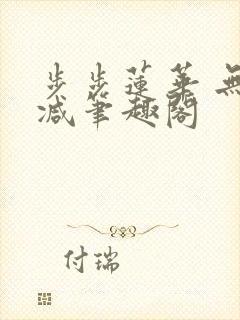 步步蓮華 無
減筆趣閣
付瑞